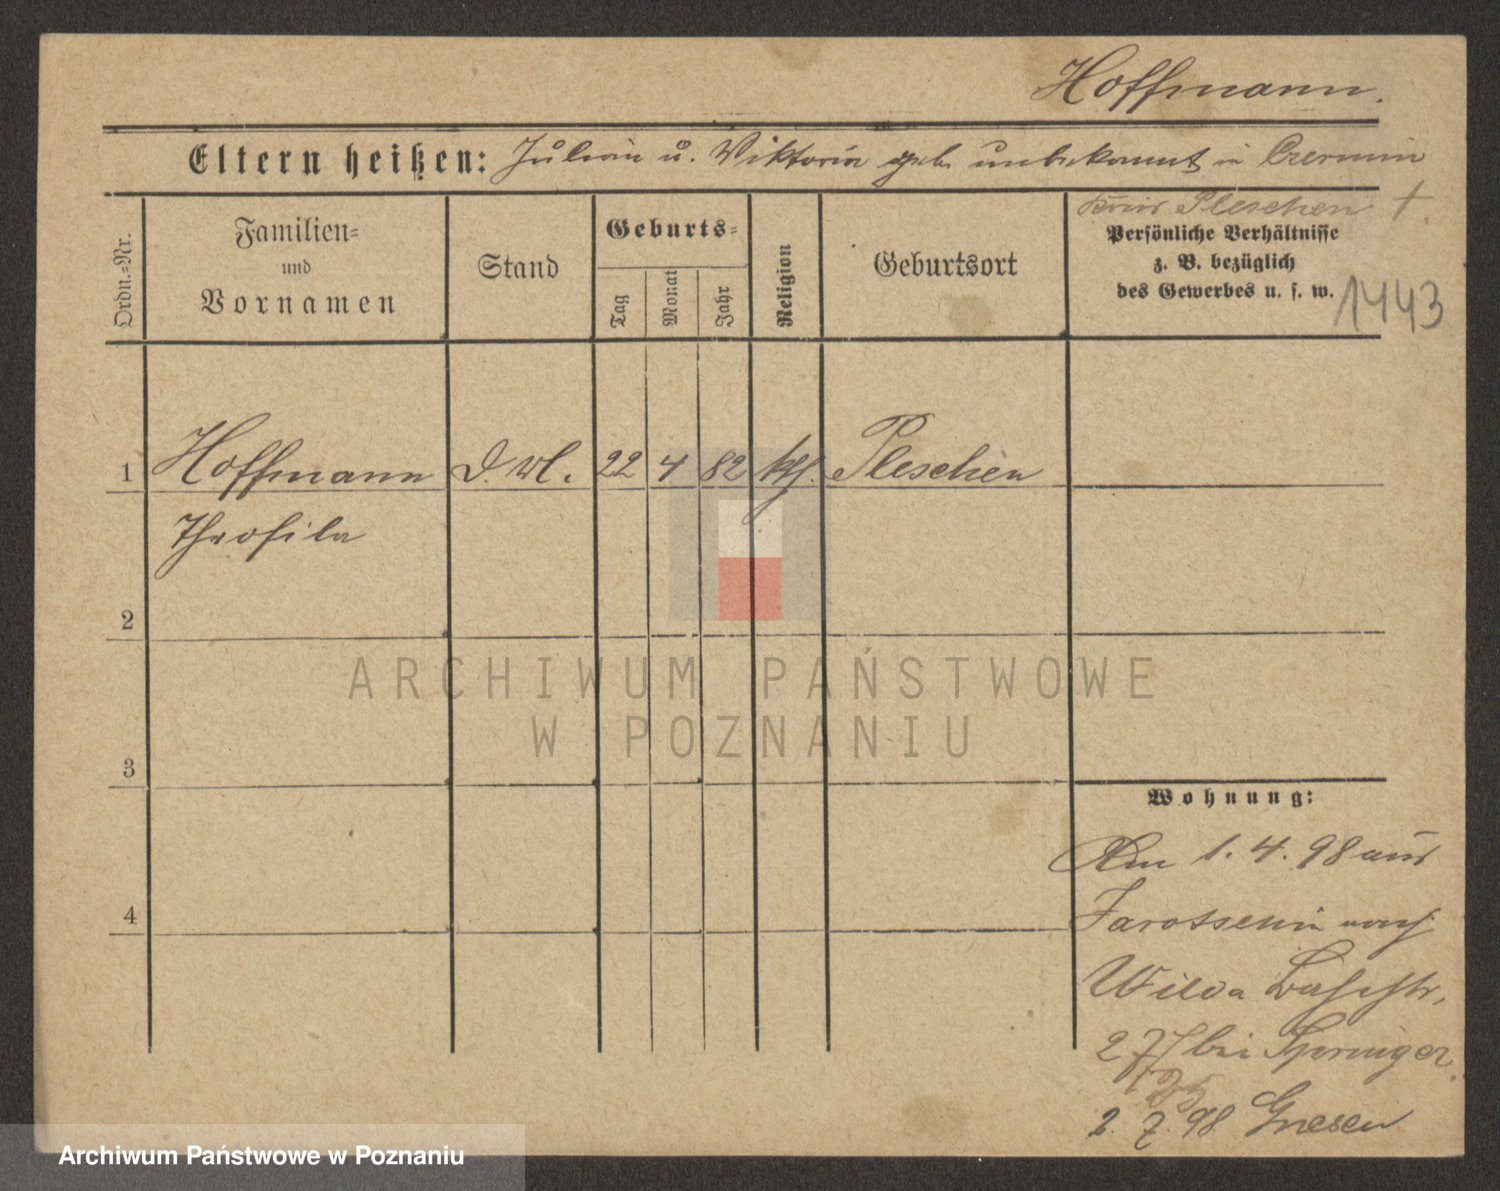 Hoffmann.
Eltern heißen: Julian u. Viktoria geb. unbekannt in Czermin
Kreis Pleschen †.
Ordn.=Nr.
Familien=
und
Vornamen
Stand
Geburts=
Tag
Monat
Jahr
Religion
Geburtsort
Persönliche Verhältnisse
z. B. bezüglich
des Gewerbes u. s. w.
1443
1 Hoffmann D. Ml. 22 4 82 kth. Pleschen
Theofila
2
3
4
Wohnung:
Am 1.4.98 aus
Jarotschin nach
Wilda
27 bei Springer
2.7.98 Gnesen
ARCHIWUM PAŃSTWOWE
W POZNANIU
Archiwum Państwowe w Poznaniu